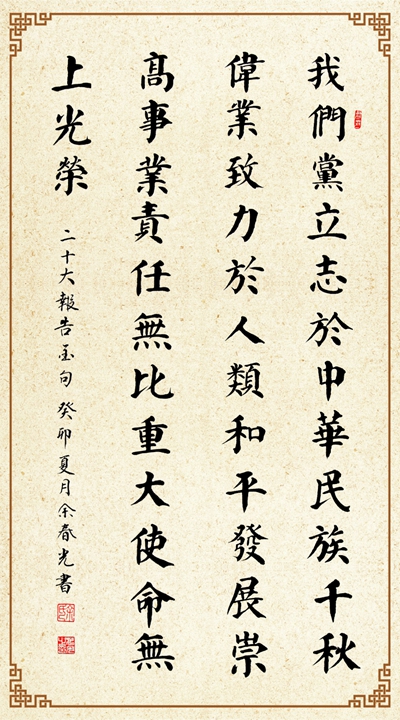 我們黨立志於中華民族千秋
偉業致力於人類和平發展崇
高事業責任無比重大使命無
上光榮
二十大報告金句 癸卯夏月余春光書